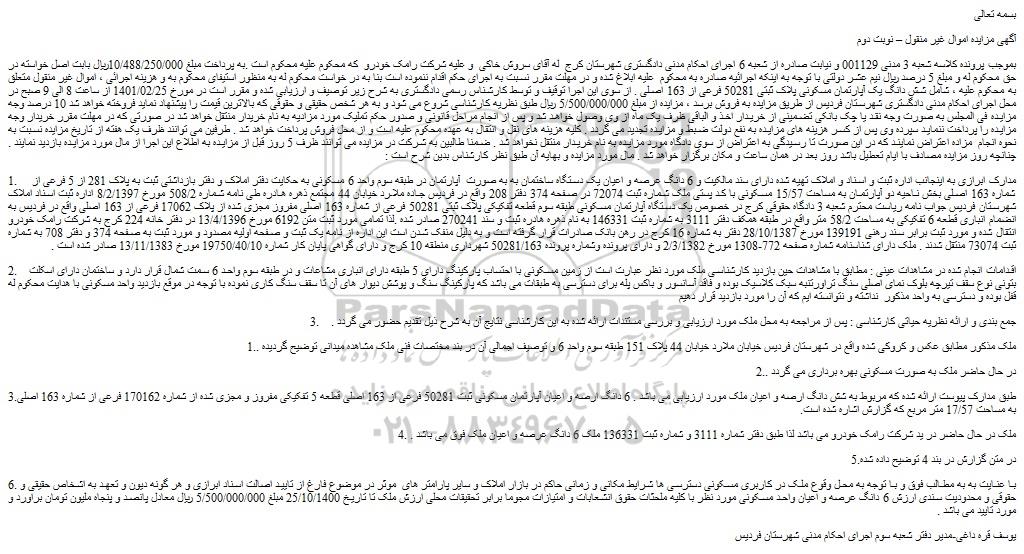 بسمه تعالی
آگهی مزایده اموال غیر منقول – نوبت دوم
بموجب پرونده کلاسه شعبه 3 مدنی 001129 و نیابت صادره از شعبه 6 اجرای احکام مدنی دادگستری شهرستان کرج له آقای سروش خاکی و علیه شرکت رامک خودرو که محکوم علیه محکوم است .به پرداخت مبلغ 10/488/250/000ریال بابت اصل خواسته در
حق محکوم له و مبلغ 5 درصد ریال نیم عشر دولتی با توجه به اینکه اجرائیه صادره به محکوم علیه ابلاغ شده و در مهلت مقرر نسبت به اجرای حکم اقدام ننموده است بنا به در خواست محکوم له به منظور استیفای محکوم به و هزینه اجرائی ، اموال غیر منقول متعلق
به محکوم علیه ، شامل شش دانگ یک آپارتمان مسکونی پلاک ثبتی 50281 فرعی از 163 اصلی . از سوی این اجرا توقیف و توسط کارشناس رسمی دادگستری به شرح زیر توصیف و ارزیابی شده و مقرر است در مورخ 1401/02/25 از ساعت 8 الی 9 صبح در
محل اجرای احکام مدنی دادگستری شهرستان فردیس از طریق مزایده به فروش برسد ، مزایده از مبلغ 5/500/000/000 ریال طبق نظریه کارشناسی شروع می شود و به هر شخص حقیقی و حقوقی که بالاترین قیمت را پیشنهاد نماید فروخته خواهد شد 10 درصد وجه
مزایده فی المجلس به صورت وجه نقد یا چک بانکی تضمینی از خریدار اخذ و الباقی ظرف یک ماه از وی وصول خواهد شد و پس از انجام مراحل قانونی و صدور حکم تملیک مورد مزادیه به نام خریدار منتقل خواهد شد در صورتی که در مهلت مقرر خریدار وجه
مزایده را پرداخت ننماید سپرده وی پس از کسر هزینه های مزایده به نفع دولت ضبط و مزایده تجدید می گردد . کلیه هزینه های نقل و انتقال به عهده محکوم علیه است و از محل فروش پرداخت خواهد شد . طرفین می توانند ظرف یک هفته از تاریخ مزایده نسبت به
نحوه انجام مزاده اعتراض نمایند که در این صورت تا رسیدگی به اعتراض از سوی دادگاه مورد مزایده به نام خریدار منتقل نخواهد شد . ضمنا طالبین به شرکت در مزایده می توانند ظرف 5 روز قبل از مزایده به اطلاع این اجرا از مال مورد مزایده بازدید نمایند .
چنانچه روز مزایده مصادف با ایام تعطیل باشد روز بعد در همان ساعت و مکان برگزار خواهد شد . مال مورد مزایده و بهایه آن طبق نظر کارشناس بدین شرح است :
1. مدارک ابرازی به اینجانب اداره ثبت و اسناد و املاک تهیه شده دارای سند مالکیت و 6 دانگ عرصه و اعیان یک دستگاه ساختمان به به صورت آپارتمان در طبقه سوم واحد 6 مسکونی به حکایت دفتر املاک و دفتر بازداشتی ثبت به پلاک 281 از 5 فرعی از
شماره 163 اصلی بخش ناحیه دو آپارتمان به مساحت 15/57 مسکونی با کد پستی ملک شماره ثبت 72074 در صفحه 374 دفتر 208 واقع در فردیس جاده ملارد خیابان 44 مجتمع ذهره هادره طی نامه شماره 508/2 مورخ 8/2/1397 اداره ثبت اسناد املاک
شهرستان فردیس جواب نامه ریاست محترم شعبه 3 دادگاه حقوقی کرج در خصوص یک دستگاه آپارتمان مسکونی طبقه سوم قطعه تفکیکی پلاک ثبتی 50281 فرعی از شماره 163 اصلی مفروز مجزی شده از پلاک 17062 فرعی از 163 اصلی واقع در فردیس به
انضمام انباری قطعه 6 تفکیکی به مساحت 58/2 متر واقع در طبقه همکف دفتر 3111 به شماره ثبت 146331 به نام ذهره هادره ثبت و سند 270241 صادر شده .لذا تمامی مورد ثبت متن 6192 مورخ 13/4/1396 در دفتر خانه 224 کرج به شرکت رامک خودرو
انتقال شده و مورد ثبت برابر سند رهنی 139191 مورخ 28/10/1387 دفتر به شماره 16 کرج در رهن بانک صادرات قرار گرفته است و به دلیل منفک شدن است این اداره از نامه یک ثبت و صفحه اولیه مصدود و مورد ثبت به صفحه 374 و دفتر 708 به شماره
ثبت 73074 منتقل شدند . ملک دارای شناسنامه شماره صفحه 772-1308 مورخ 2/3/1382 و دارای پرونده وشماره پرونده 50281/163 شهرداری منطقه 10 کرج و دارای گواهی پایان کار شماره 19750/40/10 مورخ 13/11/1383 صادر شده است .
2. اقدامات انجام شده در مشاهدات عینی : مطابق با مشاهدات حین بازدید کارشناسی ملک مورد نظر عبارت است از زمین مسکونی با احتساب پارکینگ دارای 5 طبقه دارای انباری مشاعات و در طبقه سوم واحد 6 سمت شمال قرار دارد و ساختمان دارای اسکلت
بتونی نوع سقف تیرچه بلوک نمای اصلی سنگ تراورتنبه سبک کلاسیک بوده و فاقد آسانسور و باکس پله برای دسترسی به طبقات می باشد که پارکینگ سنگ و پوشش دیوار های آن تا سقف سنگ کاری نموده با توجه در موقع بازدید واحد مسکونی با هدایت محکوم له
قفل بوده و دسترسی به واحد مذکور نداشته و نتوانسته ایم که آن را مورد بازدید قرار دهیم
3. جمع بندی و ارائه نظریه حیاتی کارشناسی : پس از مراجعه به محل ملک مورد ارزیابی و بررسی مستندات ارائه شده به این کارشناسی نتایج آن به شرح ذیل تقدیم حضور می گردد .
ملک مذکور مطابق عکس و کروکی شده واقع در شهرستان فردیس خیابان ملارد خیابان 44 پلاک 151 طبقه سوم واحد 6 و توصیف اجمالی آن در بند مختصات فنی ملک مشاهده میدانی توضیح گردیده ..1
در حال حاضر ملک به صورت مسکونی بهره برداری می گردد ..2
طبق مدارک پیوست ارائه شده که مربوط به شش دانگ ارصه و اعیان ملک مورد ارزیابی می باشد . 6 دانگ ارصه و اعیان آپارتمان مسکونی ثبت 50281 فرعی از 163 اصلی قطعه 5 تفکیکی مفروز و مجزی شده از شماره 170162 فرعی از شماره 163 اصلی.3
به مساحت 17/57 متر مربع که گزارش اشاره شده است.
ملک در حال حاضر در ید شرکت رامک خودرو می باشد لذا طبق دفتر شماره 3111 و شماره ثبت 136331 ملک 6 دانگ عرصه و اعیان ملک فوق می باشد . .4
در متن گزارش در بند 4 توضیح داده شده.5
با عنایت به به مطالب فوق و با توجه به محل وقوع ملک در کاربری مسکونی دسترسی ها شرایط مکانی و زمانی حاکم در بازار املاک و سایر پارامتر های موثر در موضوع فارغ از تایید اصالت اسناد ابرازی و هر گونه دیون و تعهد به اشخاص حقیقی و .6
حقوقی و محدودیت سندی ارزش 6 دانگ عرصه و اعیان واحد مسکونی مورد نظر با کلیه ملحقات حقوق انشعابات و امتیازات مجموعا برابر تحقیقات محلی ارزش ملک تا تاریخ 25/10/1400 مبلغ 5/500/000/000 ریال معادل پانصد و پنجاه ملیون تومان برآورد و
مورد تایید می باشد .
یوسف قره داغی-مدیر دفتر شعبه سوم اجرای احکام مدنی شهرستان فردیس
ParsNamadData
پایگاه اطلاع رسانی مناقصه و مزایده
۰۲۱-۸۸۳۴۹۶۷۰-۵